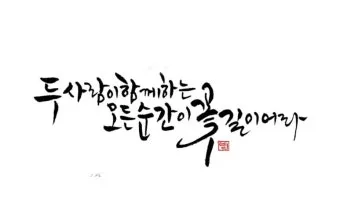 두 사람이 함께하는
모든 순간이 꽃길이어라